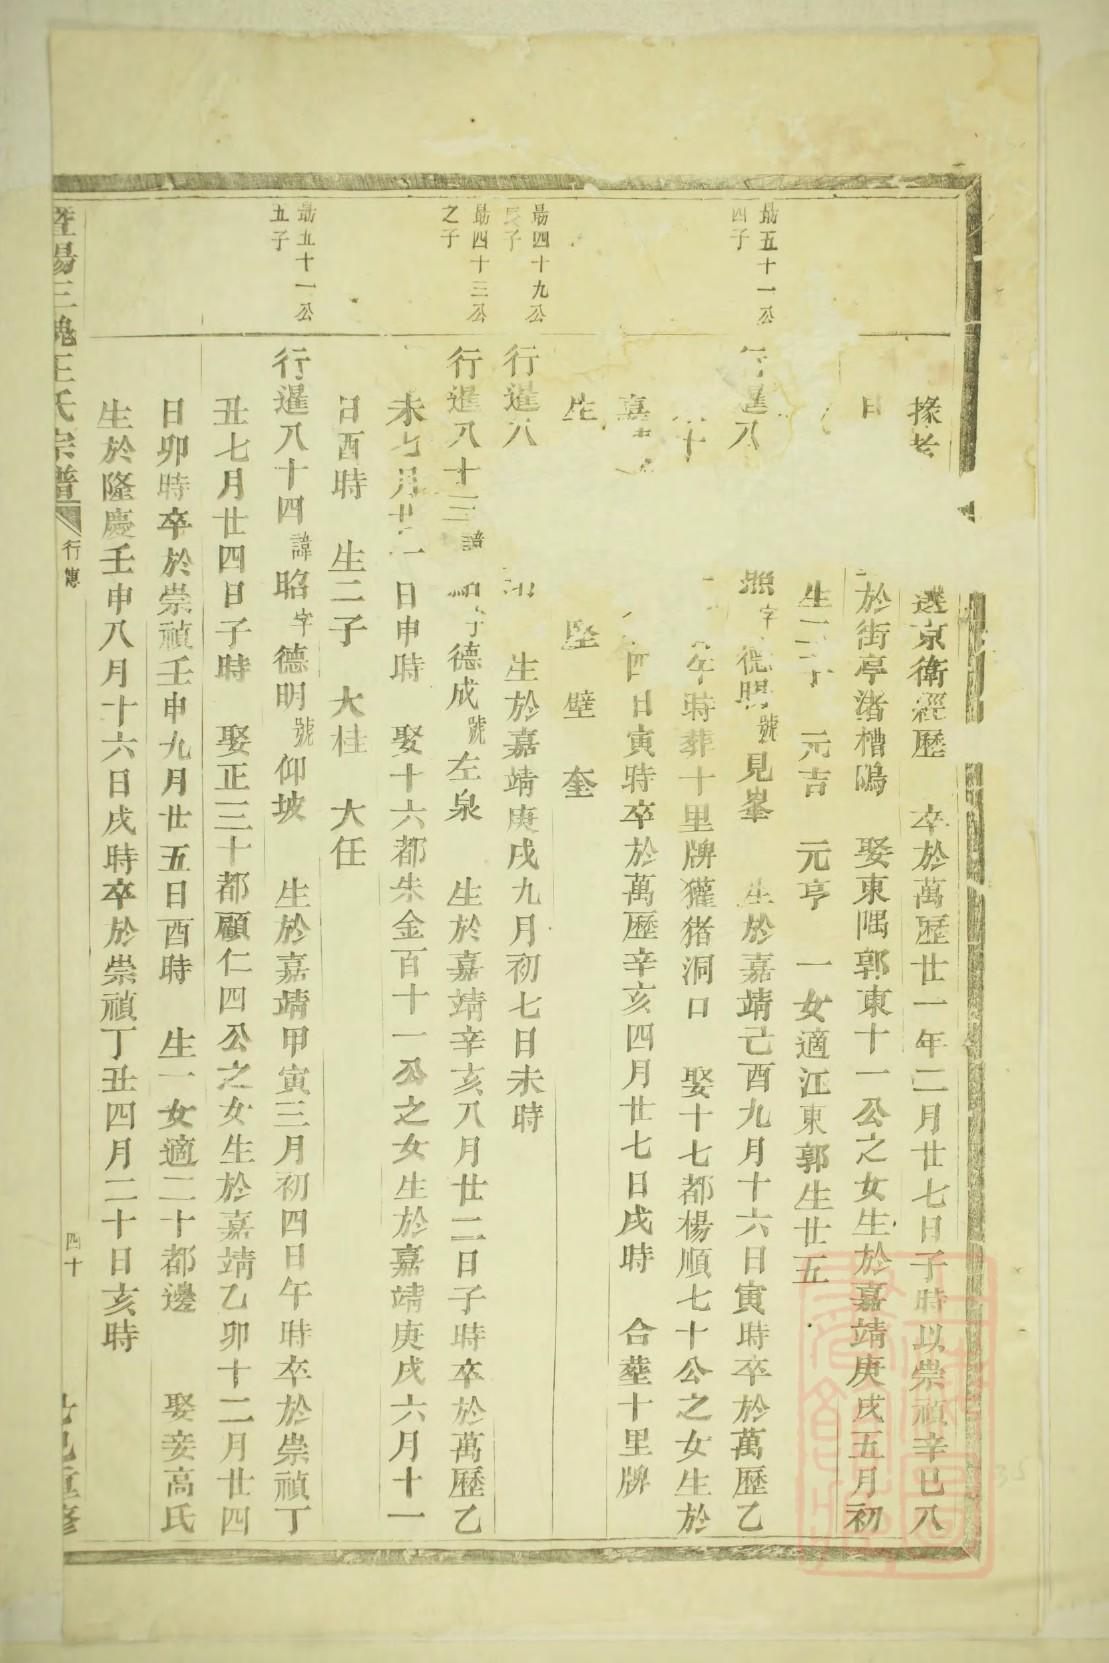 掾考 選京衛經歷 卒於萬歷廿一年二月廿七日子時以崇禎辛巳八
日 於街亭渚槽鴫 娶東隅郭東十一公之女生於嘉靖庚戌五月初
生二子 元吉 元亨 一女適江東郭生廿五
勗五十一公
四子
行暹八 照字德 號見峯 生於嘉靖己酉九月十六日寅時卒於萬歷乙
午時葬十里牌獾猪洞口 娶十七都楊順七十公之女生於
嘉 四日寅時卒於萬歷辛亥四月廿七日戌時 合葬十里牌
生 堅 壁 奎
勗四十九公
長子
行暹八 生於嘉靖庚戌九月初七日未時
勗四十三公
之子
行暹八十三諱 字德成號左泉 生於嘉靖辛亥八月廿二日子時卒於萬歷乙
未七月廿一日申時 娶十六都朱金百十一公之女生於嘉靖庚戌六月十一
日酉時 生二子 大桂 大任
勗五十一公
五子
行暹八十四諱昭字德明號仰坡 生於嘉靖甲寅三月初四日午時卒於崇禎丁
丑七月廿四日子時 娶正三十都顧仁四公之女生於嘉靖乙卯十二月廿四
日卯時卒於崇禎壬申九月廿五日酉時 生一女適二十都邊 娶妾高氏
生於隆慶壬申八月十六日戌時卒於崇禎丁丑四月二十日亥時
暨陽三槐王氏宗譜 行傳 四十 重修